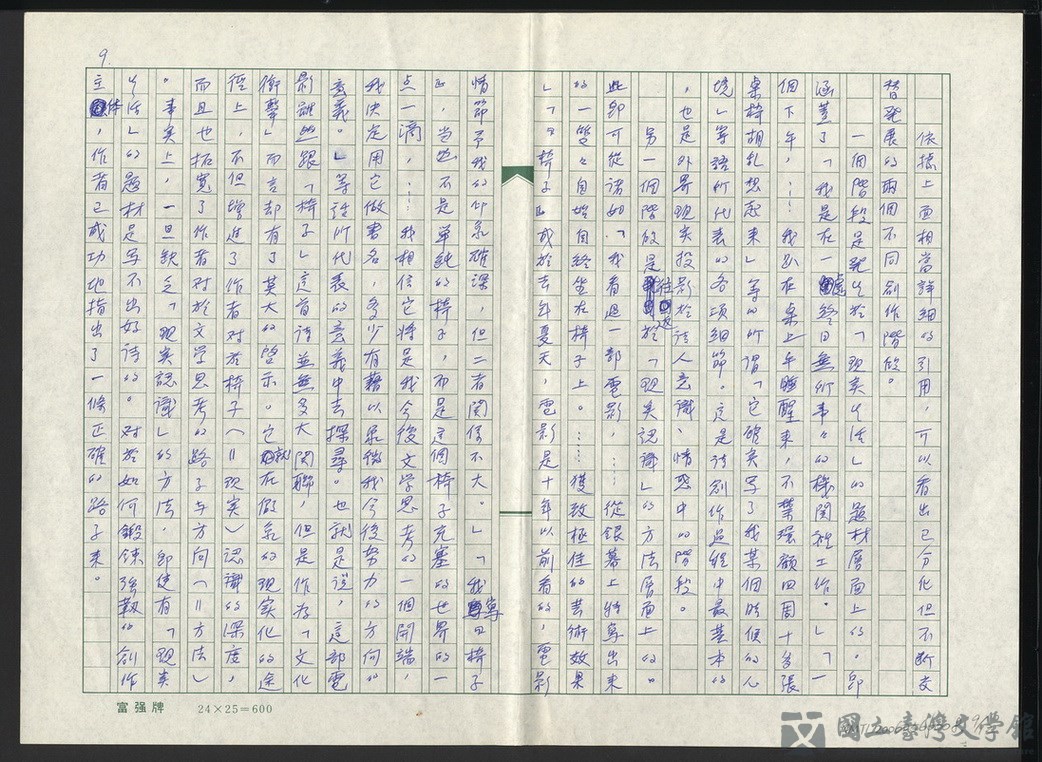 9.
依據上面相當詳細的引用，可以看出已分化但不斷交
替發展的兩個不同創作階段。
一個階段是發生於「現實生活」的題材層面上的，即
涵蓋了「我是在一處終日無所事事的機關裡工作。」「一
個下午，……我趴在桌上午睡醒來，不禁環顧四周十多張
桌椅胡亂想起來」等句所謂「它確實寫了我某個時候的心
境」等語所代表的各項細節。這是詩創作過程中最基本的
，也是外界現實投影於詩人意識、情感中的階段。
另一個階段是往返於「現實認識」的方法層面上的。
此即可從諸如「我看過一部電影，……從銀幕上特寫出來
的一雙自始自終坐在椅子上。……獲致極佳的藝術效果
」「『椅子』成於去年夏天，電影是十年以前看的，電影
情節予我的印象確深，但二者關係不大。」「我寫曰椅子
』，當然不是單純的椅子，而是這個椅子充塞的世界的一
点一滴，……我相信它將是我今後文學思考的一個開端，
我決定用它做書名，多少有藉以象徵我今後努力的方向的
意義。」等話所代表的意義中去探尋。也就是說，這部電
影雖然跟「椅子」這首詩並無多大關聯，但是作為「文化
衝擊」而言却有了莫大的啓示。它就在做象的現實化的途
徑上，不但增進了作者對於椅子（＝現實）認識的深度，
而且也拓寬了作者對於文學思考的路子与方向（＝方法）
。事實上，一旦缺乏「現實認識」的方法，即使有「現實
生活」的題材是写不出好詩的。對於如何鍛鍊強靱的創作
主体，作者已成功地指出了一條正確的路子來。
富强牌 24×25=600
國立臺灣文學館